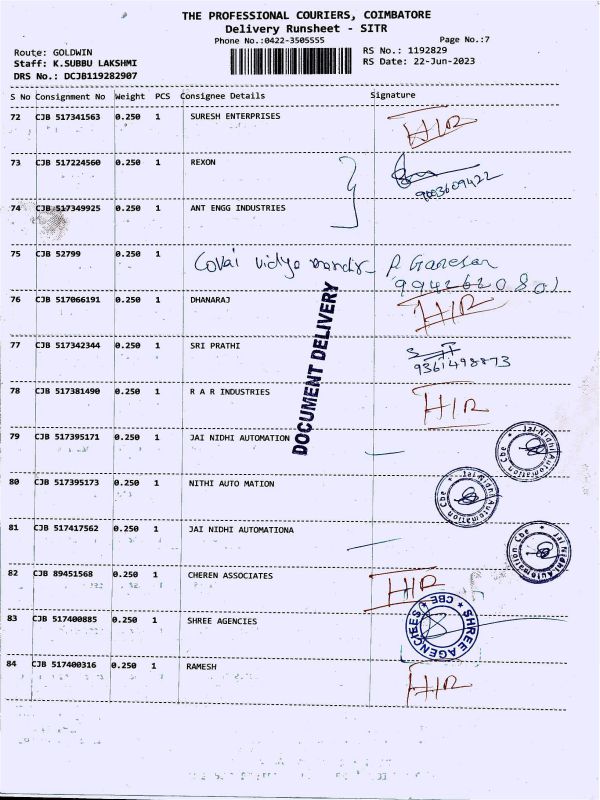 THE PROFESSIONAL COURIERS, COIMBATORE
Delivery Runsheet - SITR
Phone No.:0422-3505555 Page No.:7
Route: GOLDWIN RS No.: 1192829
Staff: K.SUBBU LAKSHMI RS Date: 22-Jun-2023
DRS No.: DCJB119282907
S No Consignment No Weight PCS Consignee Details Signature
72 CJB 517341563 0.250 1 SURESH ENTERPRISES H/R
73 CJB 517224560 0.250 1 REXON
9003609422
74 CJB 517349925 0.250 1 ANT ENGG INDUSTRIES
75 CJB 52799 0.250 1 Covai vidya mandir P. Ganesan
9942620801
76 CJB 517066191 0.250 1 DHANARAJ H/R
77 CJB 517342344 0.250 1 SRI PRATHI
9361498873
78 CJB 517381490 0.250 1 R A R INDUSTRIES H/R
DOCUMENT DELIVERY
79 CJB 517395171 0.250 1 JAI NIDHI AUTOMATION Jai Nidhi Automation Cbe
80 CJB 517395173 0.250 1 NITHI AUTO MATION Jai Nidhi Automation Cbe
81 CJB 517417562 0.250 1 JAI NIDHI AUTOMATIONA Jai Nidhi Automation Cbe
82 CJB 89451568 0.250 1 CHEREN ASSOCIATES H/R
83 CJB 517400885 0.250 1 SHREE AGENCIES SHREE AGENCIEES CBE
84 CJB 517400316 0.250 1 RAMESH H/R